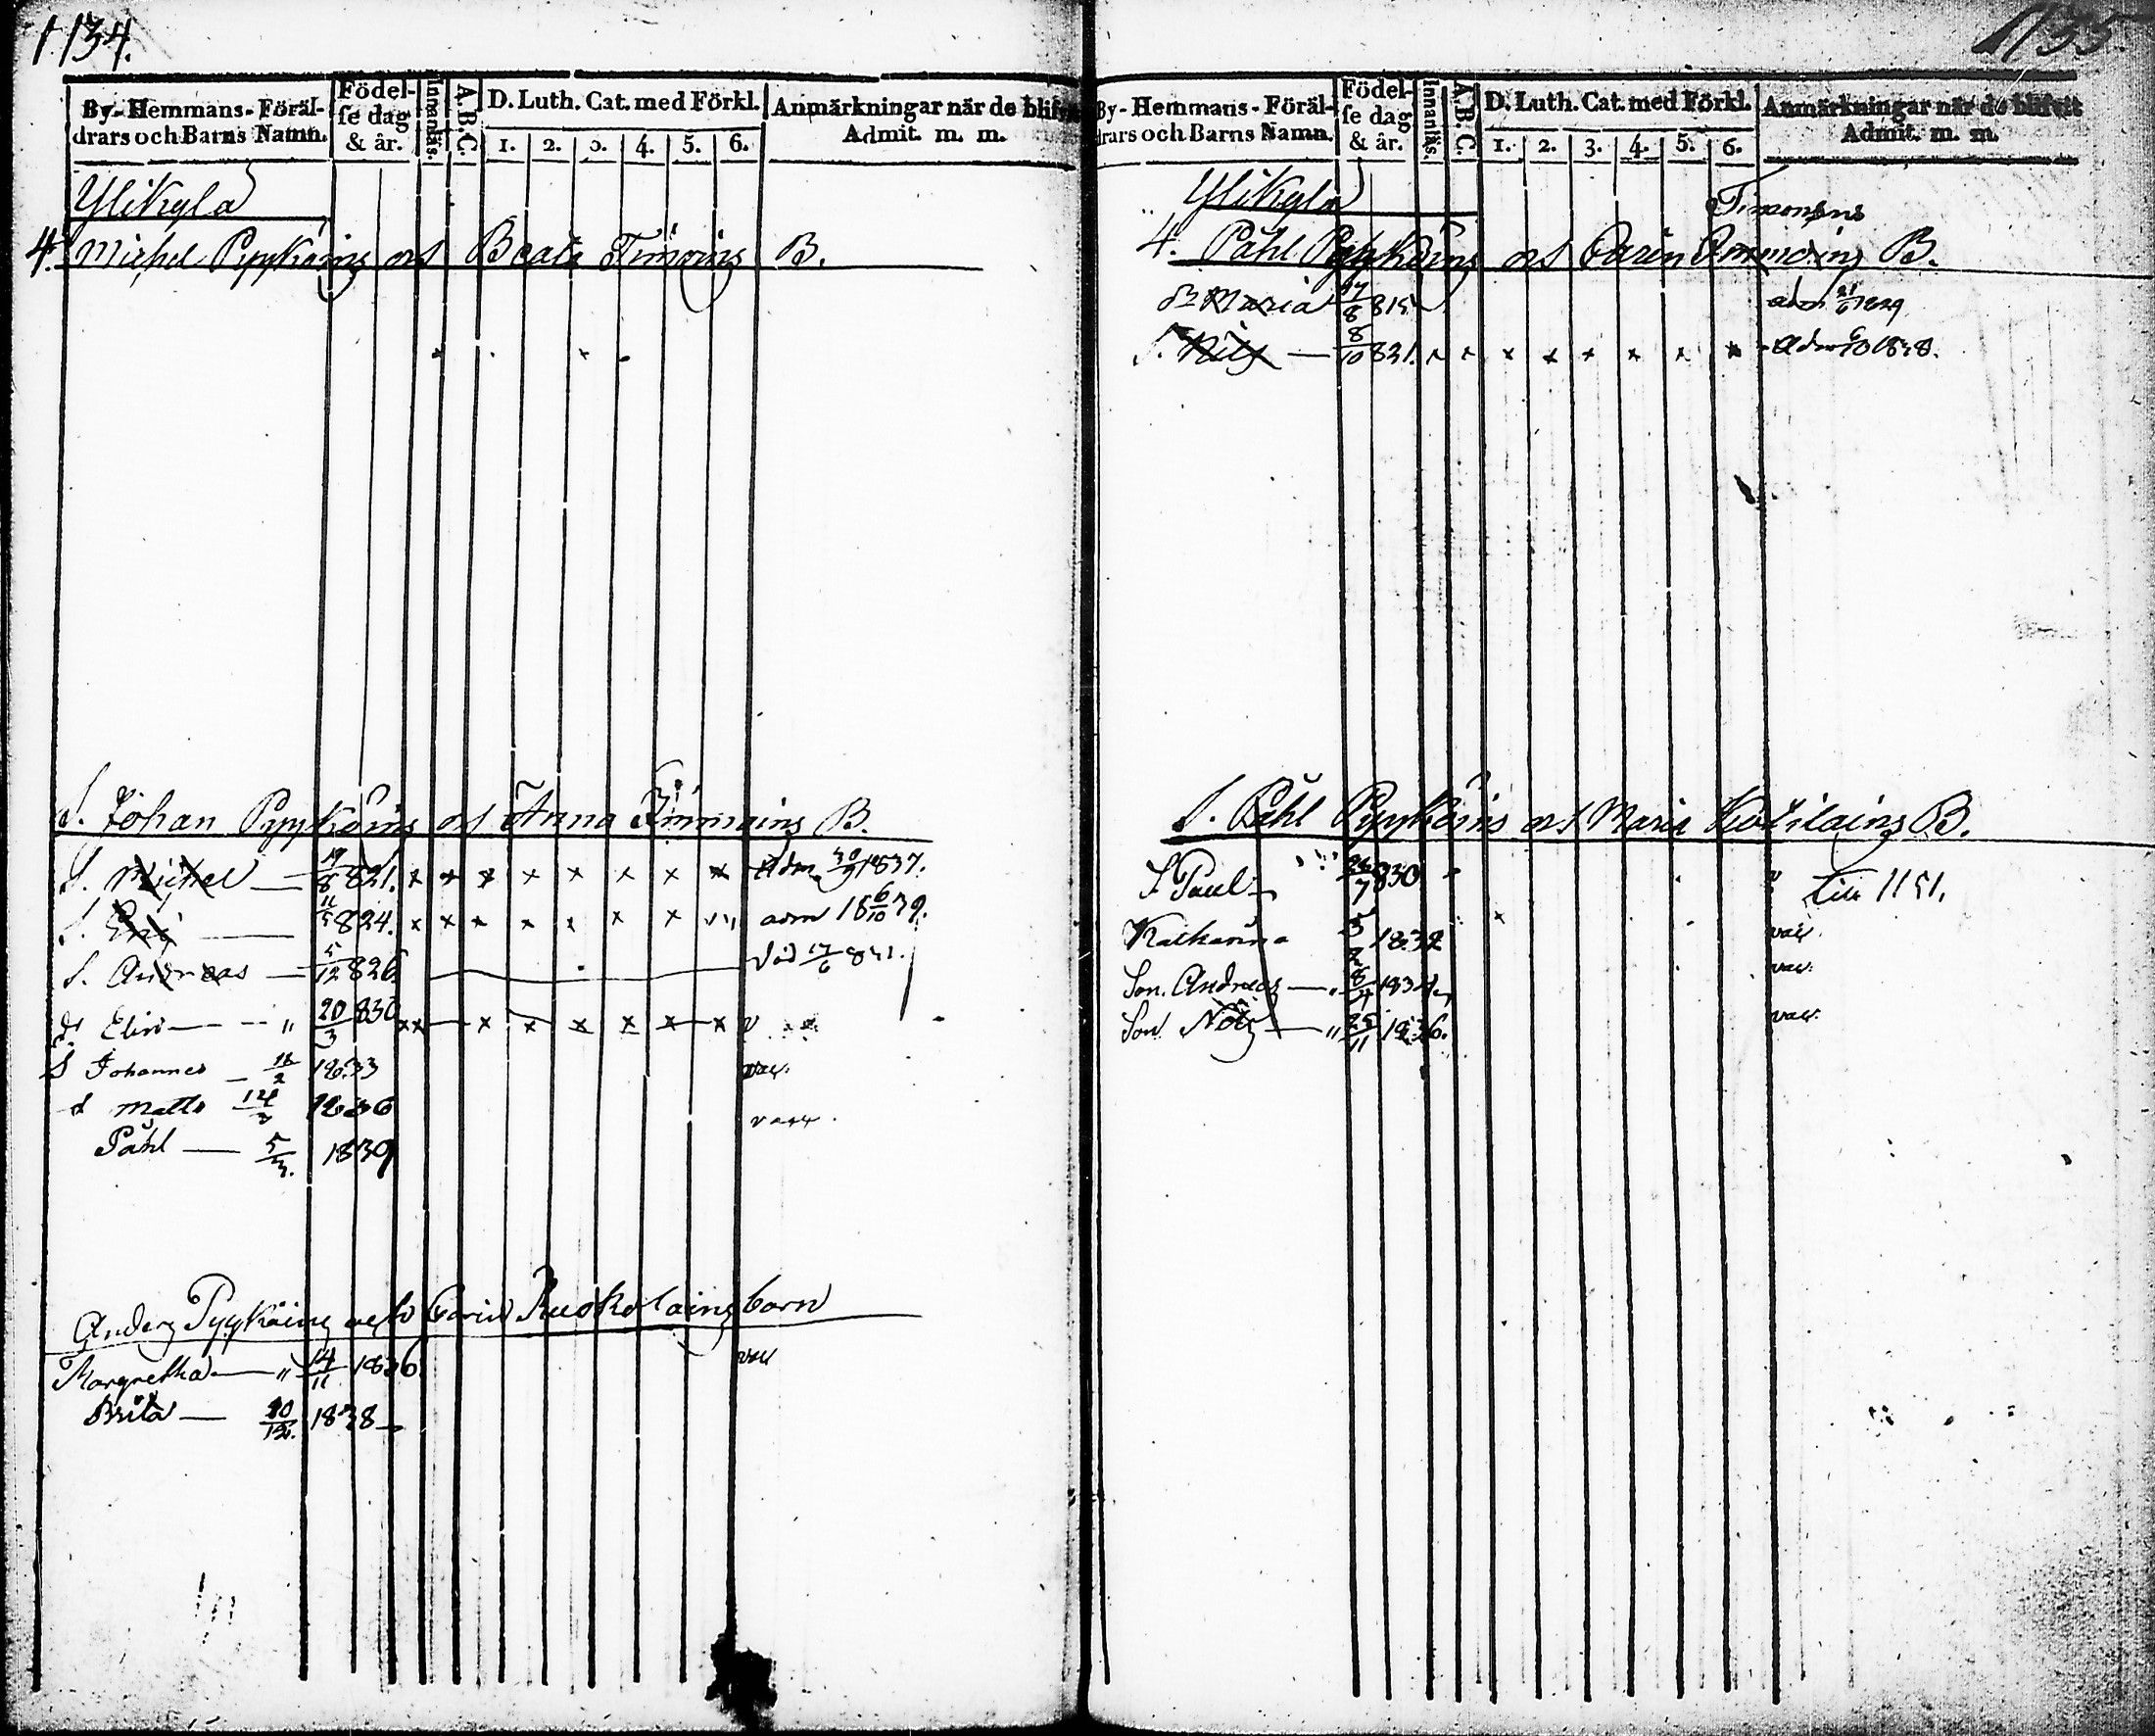 1134.
By- Hemmans- Föräl-
drars och Barns Namn.
Födel-
se dag
& år.
Innanläs.
A. B. C.
D. Luth. Cat. med Förkl.
1. 2. 3. 4. 5. 6.
Anmärkningar när de blifvit
Admit. m. m.
Ylikylä
4. Michel Pyyköins och Beata Timoins B.
S. Johan Pyyköins och Anna Timmoins B.
S. Michel — 19/8 821. x x x x x x x x Adm. 30/9 1837.
S. Eric — 11/5 824. x x x x x x x adm 18 6/10 39.
S. Andreas — 5/12 826. död 17/6 831.
d. Elin — " 20/3 830 x x — x x x x x x v
S Johannes — 18/2 1833 vac.
d matts 14/3 1836 vacc.
Påhl — 5/3. 1839
Anders Pyyköins och Carin Ruokolains barn
Margretha — " 14/11 1836. vac
Brita — 10/12. 1838 —
1135.
By- Hemmans- Föräl-
drars och Barns Namn.
Födel-
se dag
& år.
Innanläs.
A. B. C.
D. Luth. Cat. med Förkl.
1. 2. 3. 4. 5. 6.
Anmärkningar när de blifvit
Admit. m. m.
Ylikylä
Timonens
4. Påhl Pyyköins och Carin B.
Maria 17/8 815 adm 21/6 1829
S. Nils — 8/10 821. x x x x x x x x Adm 6/10 1838.
S. Påhl Pyyköins och Maria Kotilains B.
S Paul — 26/7 830 till 1151.
Katharina 5/2 1832 vac.
Son. Andreas — " 8/4 1834 vac.
Son Nils — " 25/11 1836. vac.